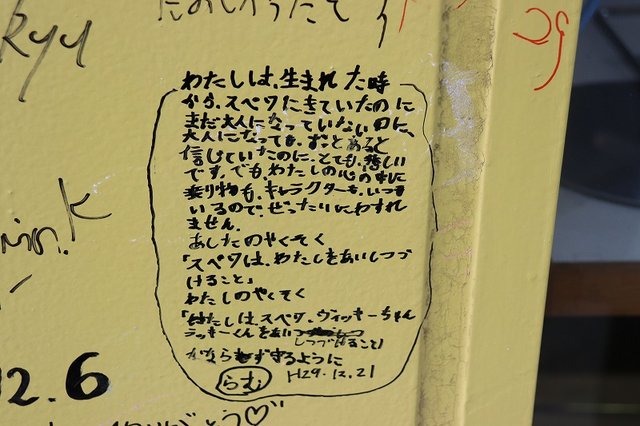 たのしかったです
kyu
わたしは、生まれた時
から、スペワにきていたのに
まだ大人になっていないのに、
大人になっても、おとあると
信じていたのに、とても、悲しい
です。でも、わたしの心の中に
乗り物も、キャラクターも、いつも
いるので、ぜったいにわすれ
ません。
あしたのやくそく
「スペワは、わたしをあいしつづ
けること」
わたしのやくそく
「わたしは、スペワ、ヴィッキーちゃん
ラッキーくんをあい
しつづけること」
かならず守るように
らむ H29.12.21
12.6
とう♡